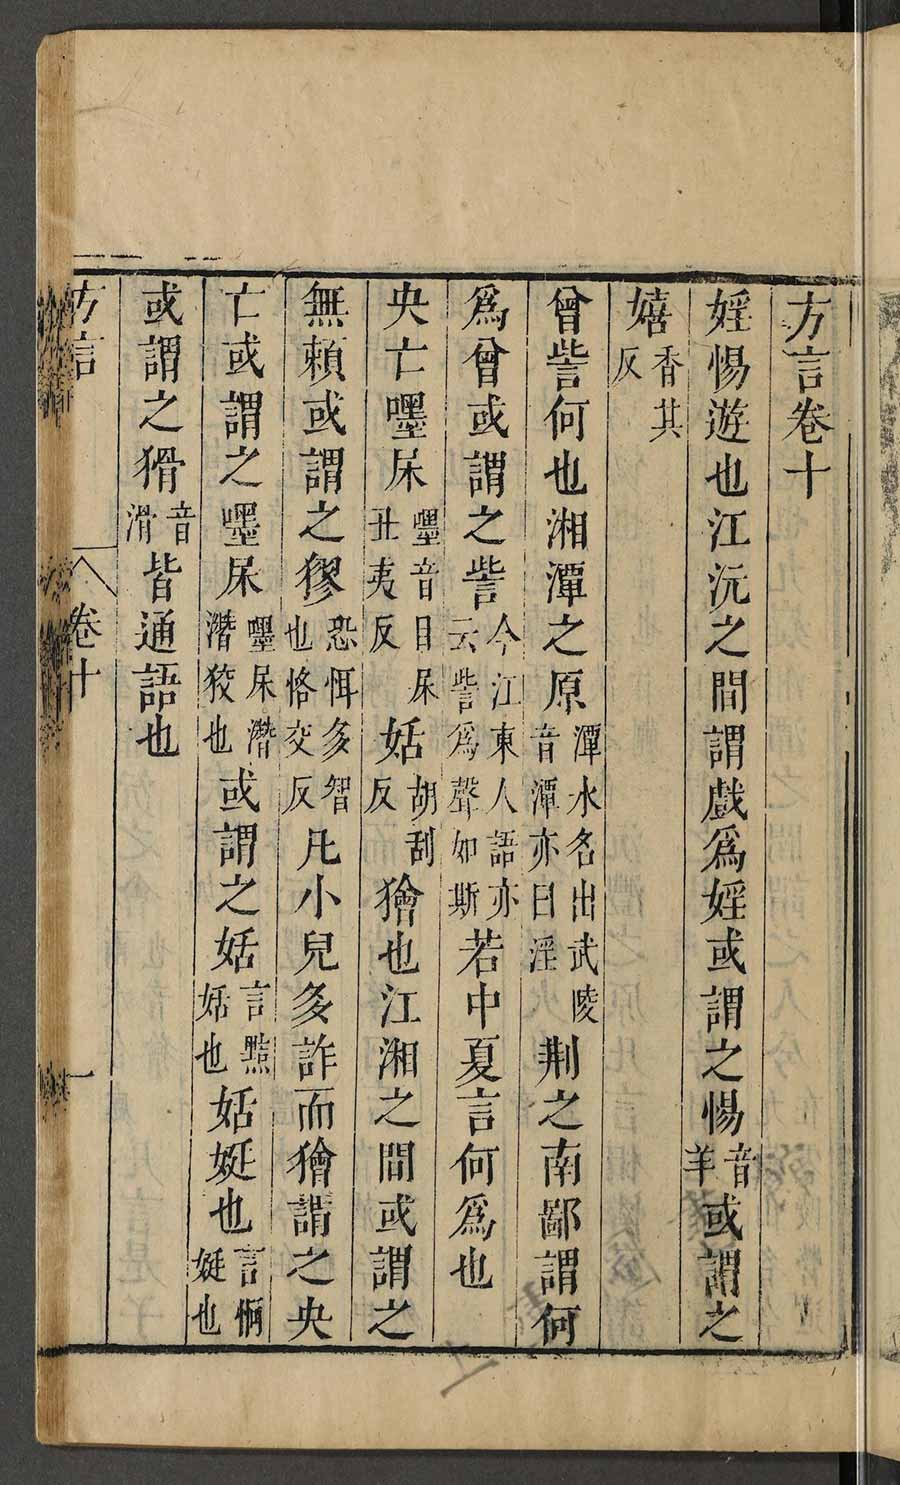 方言卷十
婬愓遊也江沅之間謂戲爲婬或謂之愓音羊或謂之
嬉香其反
曾訾何也湘潭之原潭水名出武陵音潭亦曰淫荆之南鄙謂何
爲曾或謂之訾今江東人語亦云訾爲聲如斯若中夏言何爲也
央亡嚜㞘嚜音目㞘丑夷反姡胡刮反獪也江湘之間或謂之
無賴或謂之㺒恐㤥多智也恪交反凡小兒多詐而獪謂之央
亡或謂之嚜㞘嚜㞘潛潛狡也或謂之姡言黠姡也姡娗也言恫娗也
或謂之猾音滑皆通語也
方言 卷十 一